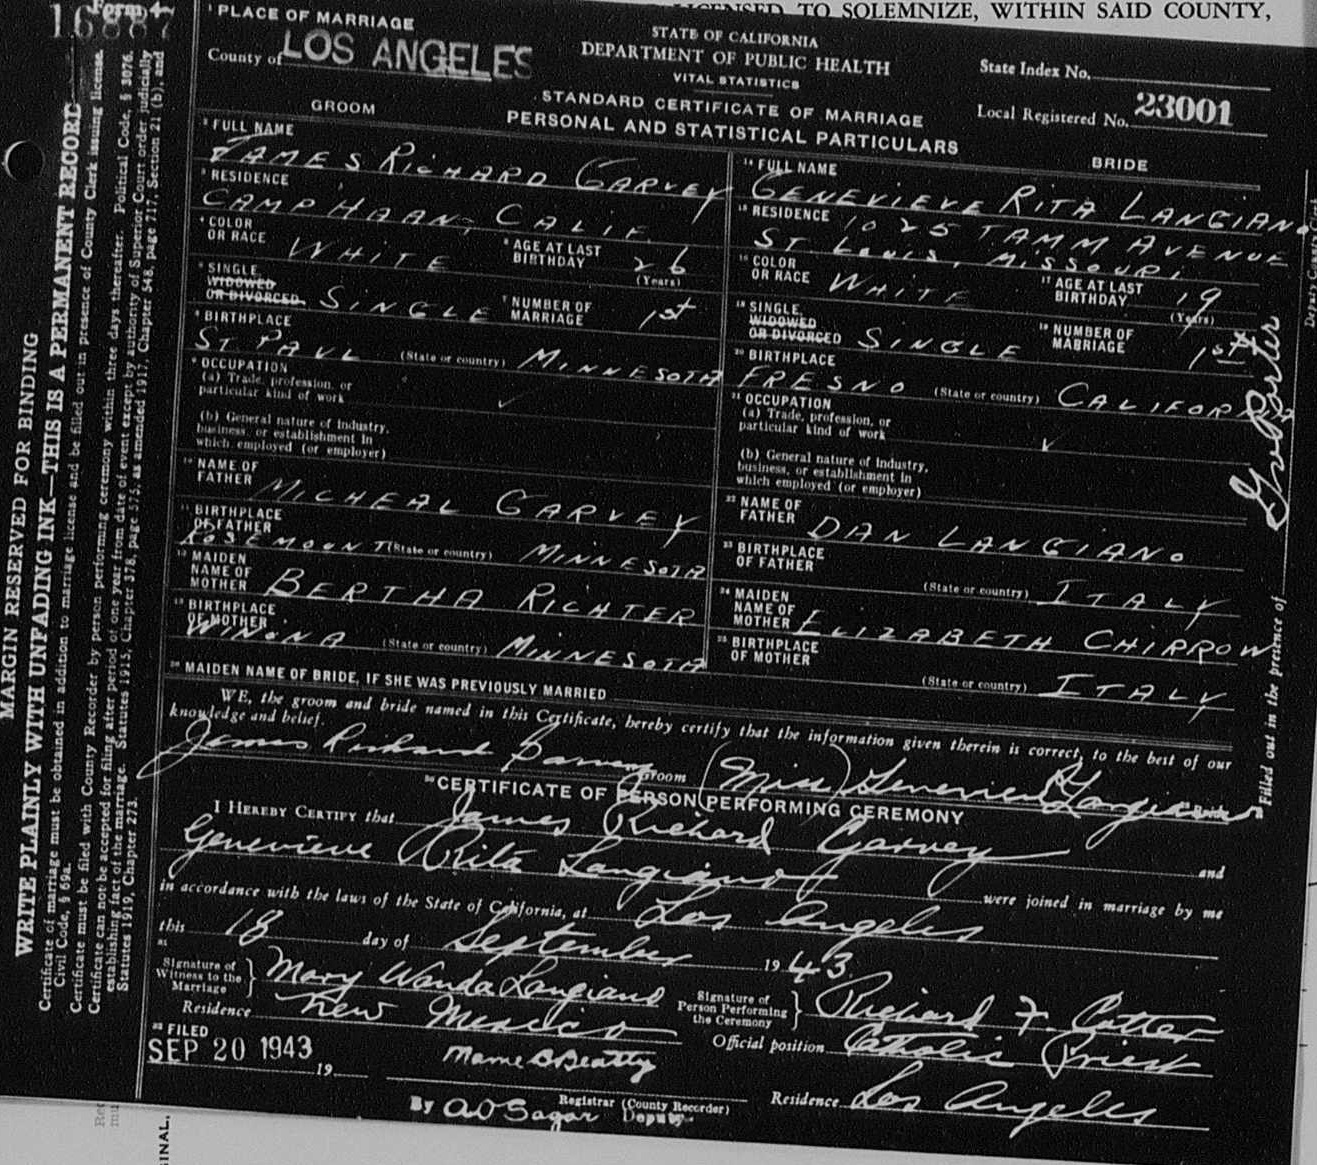 LICENSED, TO SOLEMNIZE, WITHIN SAID COUNTY,
Form 4
16887
1 PLACE OF MARRIAGE
County of LOS ANGELES
STATE OF CALIFORNIA
DEPARTMENT OF PUBLIC HEALTH
VITAL STATISTICS
STANDARD CERTIFICATE OF MARRIAGE
PERSONAL AND STATISTICAL PARTICULARS
State Index No.
Local Registered No. 23001
GROOM
2 FULL NAME
JAMES RICHARD GARVEY
3 RESIDENCE
CAMP HAAN, CALIF.
4 COLOR OR RACE WHITE
5 AGE AT LAST BIRTHDAY 26 (Years)
6 SINGLE WIDOWED OR DIVORCED SINGLE
7 NUMBER OF MARRIAGE 1st
8 BIRTHPLACE
ST PAUL (State or country) MINNESOTA
9 OCCUPATION
(a) Trade, profession, or particular kind of work ✓
(b) General nature of industry, business, or establishment in which employed (or employer)
10 NAME OF FATHER MICHEAL GARVEY
11 BIRTHPLACE OF FATHER
ROSEMOUNT (State or country) MINNESOTA
12 MAIDEN NAME OF MOTHER BERTHA RICHTER
13 BIRTHPLACE OF MOTHER
WINONA (State or country) MINNESOTA
BRIDE
14 FULL NAME
GENEVIEVE RITA LANGIANO
15 RESIDENCE 1025 TAMM AVENUE
ST LOUIS, MISSOURI
16 COLOR OR RACE WHITE
17 AGE AT LAST BIRTHDAY 19 (Years)
18 SINGLE WIDOWED OR DIVORCED SINGLE
19 NUMBER OF MARRIAGE 1st
20 BIRTHPLACE
FRESNO (State or country) CALIFORNIA
21 OCCUPATION
(a) Trade, profession, or particular kind of work ✓
(b) General nature of industry, business, or establishment in which employed (or employer)
22 NAME OF FATHER DAN LANGIANO
23 BIRTHPLACE OF FATHER
(State or country) ITALY
24 MAIDEN NAME OF MOTHER ELIZABETH CHIRROW
25 BIRTHPLACE OF MOTHER
(State or country) ITALY
26 MAIDEN NAME OF BRIDE, IF SHE WAS PREVIOUSLY MARRIED
WE, the groom and bride named in this Certificate, hereby certify that the information given therein is correct, to the best of our
knowledge and belief.
James Richard Garvey Groom (Miss) Genevieve R Langiano Bride
CERTIFICATE OF PERSON PERFORMING CEREMONY
I HEREBY CERTIFY that James Richard Garvey
and
Genevieve Rita Langiano were joined in marriage by me
in accordance with the laws of the State of California, at Los Angeles
this 18 day of September 1943
Signature of Witness to the Marriage } Mary Wanda Langiano
Residence New Mexico
Signature of Person Performing the Ceremony } Richard F. Cotter
Official position Catholic Priest
Residence Los Angeles
FILED
SEP 20 1943
19
Mame B Beatty
Registrar (County Recorder)
By A O Sagar Deputy
MARGIN RESERVED FOR BINDING
WRITE PLAINLY WITH UNFADING INK—THIS IS A PERMANENT RECORD
Certificate of marriage must be obtained in addition to marriage license and be filled out in presence of County Clerk issuing license.
Civil Code, § 69a.
Certificate must be filed with County Recorder by person performing ceremony within three days thereafter. Political Code, § 3076.
Certificate can not be accepted for filing after period of one year from date of event except by authority of Superior Court order judicially
establishing fact of the marriage. Statutes 1915, Chapter 378, page 575, as amended 1917, Chapter 548, page 717, Section 21 (b), and
Statutes 1919, Chapter 273.
Filled out in the presence of
Porter
Deputy County Clerk
GINAL.